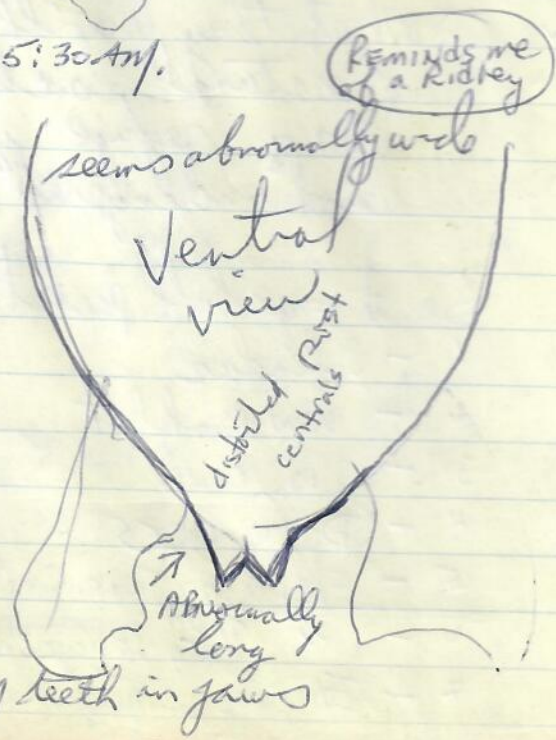 5:30 AM.
Reminds me
of a Ridley
seems abnormally wide
Ventral
view
distorted Post
centrals
Abnormally
long
teeth in jaws